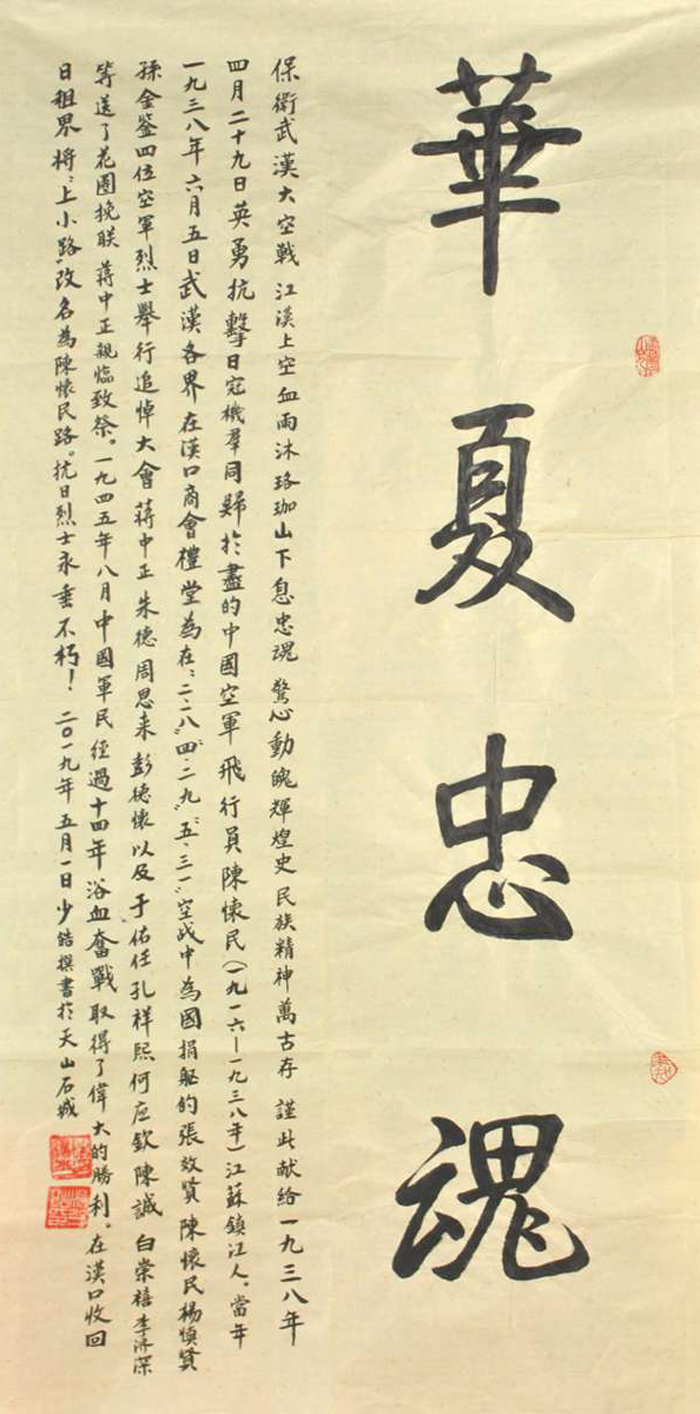 華夏忠魂
保衛武漢大空戰 江漢上空血雨沐 珞珈山下息忠魂 驚心動魄輝煌史 民族精神萬古存 謹此献给一九三八年
四月二十九日英勇抗擊日寇機羣同歸於盡的中國空軍飛行員陳懷民(一九一六—一九三八年)江蘇鎮江人。當年
一九三八年六月五日武漢各界在漢口商會禮堂為在“二·一八”“四·二九”“五·三一”空战中為國捐躯的張效賢陳懷民楊慎賢
孫金鉴四位空軍烈士舉行追悼大會蒋中正朱德周恩来彭德懷以及于佑任孔祥熙何应欽陳誠白崇禧李济深
等送了花圈挽联蒋中正親臨致祭。一九四五年八月中國軍民經過十四年浴血奮戰取得了偉大的勝利。在漢口收回
日租界將“上小路”改名為陳懷民路。抗日烈士永垂不朽！二〇一九年五月一日少皓撰書於天山石城